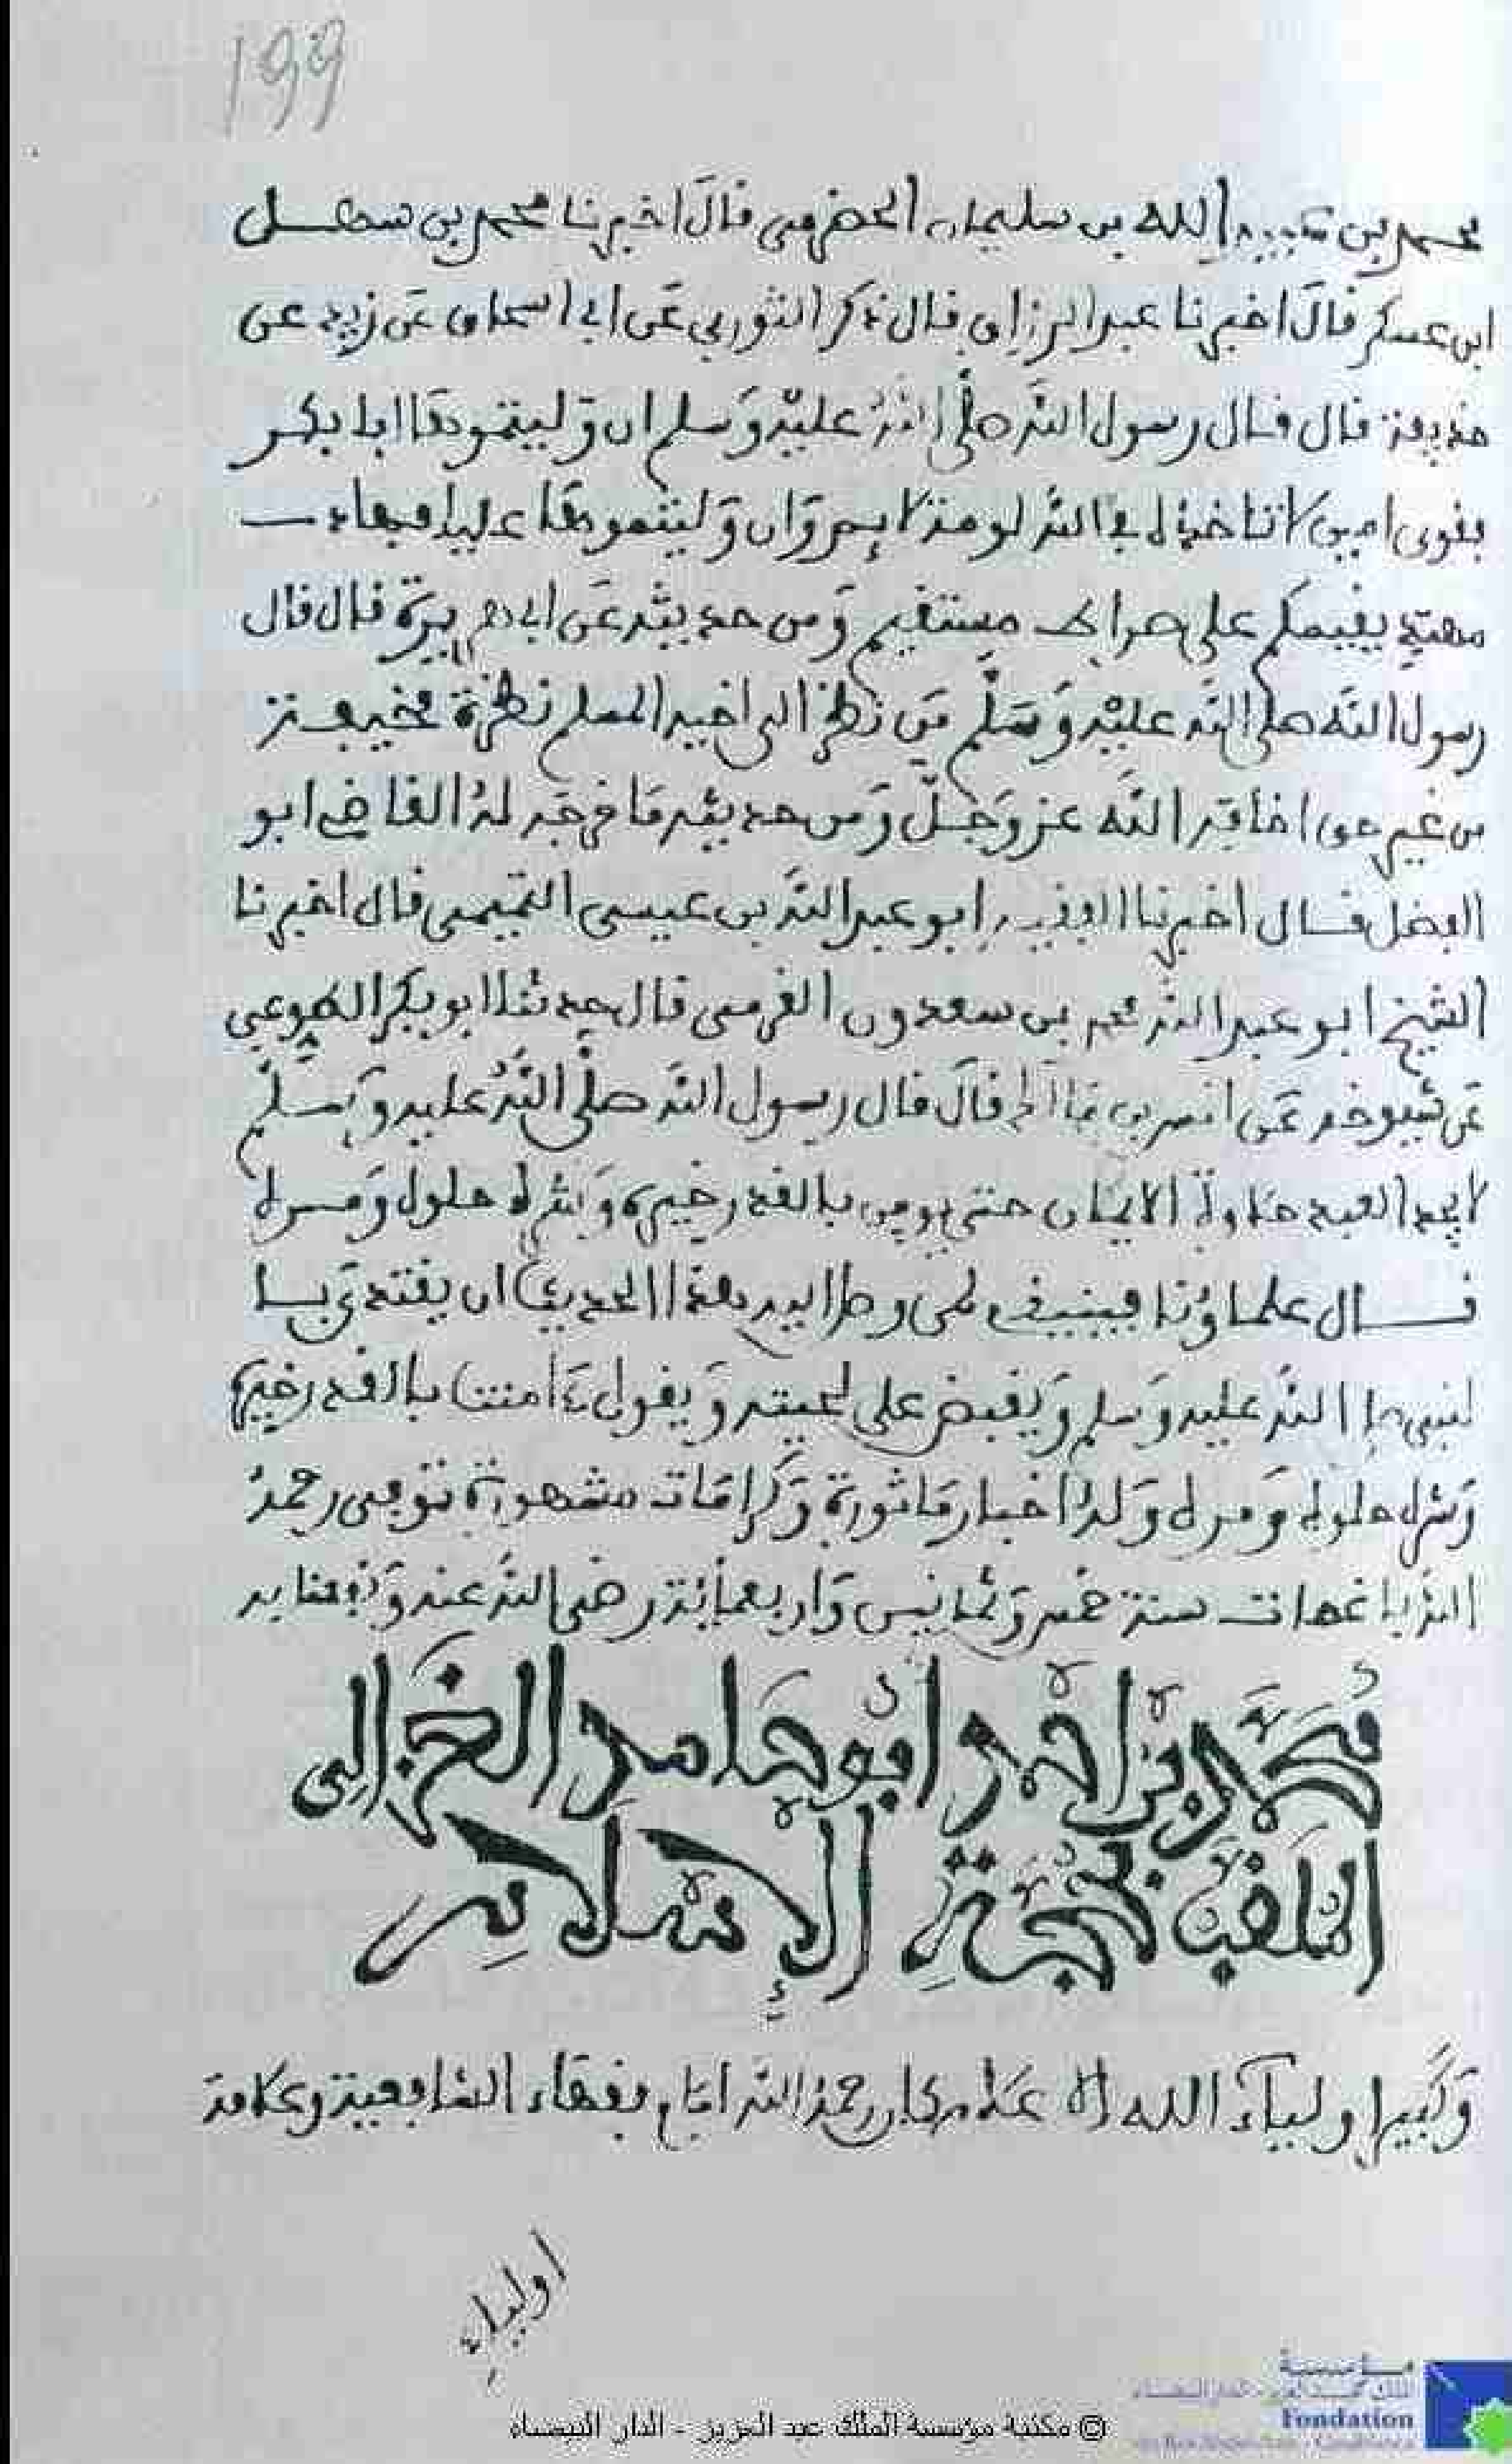 199
محمد بن عبيد الله بن سليمان الحضرمي قال اخبرنا محمد بن سهل
ابن عسكر قال اخبرنا عبد الرزاق قال ذكر الثوري عن ابي اسحاق عن زيد عن
حذيفة قال قال رسول الله صلى الله عليه وسلم ان وليتموها ابا بكر
فقوي امين لا تاخذه في الله لومة لايم وان وليتموها عليا فهاد
مهتد يقيمكم على صراط مستقيم ومن حديثه عن ابي هريرة قال قال
رسول الله صلى الله عليه وسلم من نظر الى اخيه المسلم نظرة مخيفة
من غير حق اخافه الله عز وجل ومن حديثه ما خرجه له القاضي ابو
الفضل قال اخبرنا الفقيه ابو عبد الله بن عيسى التميمي قال اخبرنا
الشيخ ابو عبد الله محمد بن سعدون القروي قال حدثنا ابو بكر المطوعي
عن شيوخه عن انس بن مالك قال قال رسول الله صلى الله عليه وسلم
لا يجد العبد حلاوة الايمان حتى يومن بالقدر خيره وشره حلوه ومره
قال علماؤنا فينبغي لمن وصل اليه هذا الحديث ان يقتدي با
لنبي صلى الله عليه وسلم ويقبض على لحيته ويقول ءامنت بالقدر خيره
وشره حلوه ومره وله اخبار ماثورة وكرامات مشهورة توفي رحمه
الله باغمات سنة خمس وثمانين واربعمائة رضي الله عنه ونفعنا به
محمد بن احمد ابو حامد الغزالي
الملقب بحجة الإسلام
وكبير اولياء الله رحمه الله امام فقهاء الشافعية وعلامة
اولياء
مؤسسة
Fondation
© مكتبة مؤسسة الملك عبد العزيز - الدار البيضاء